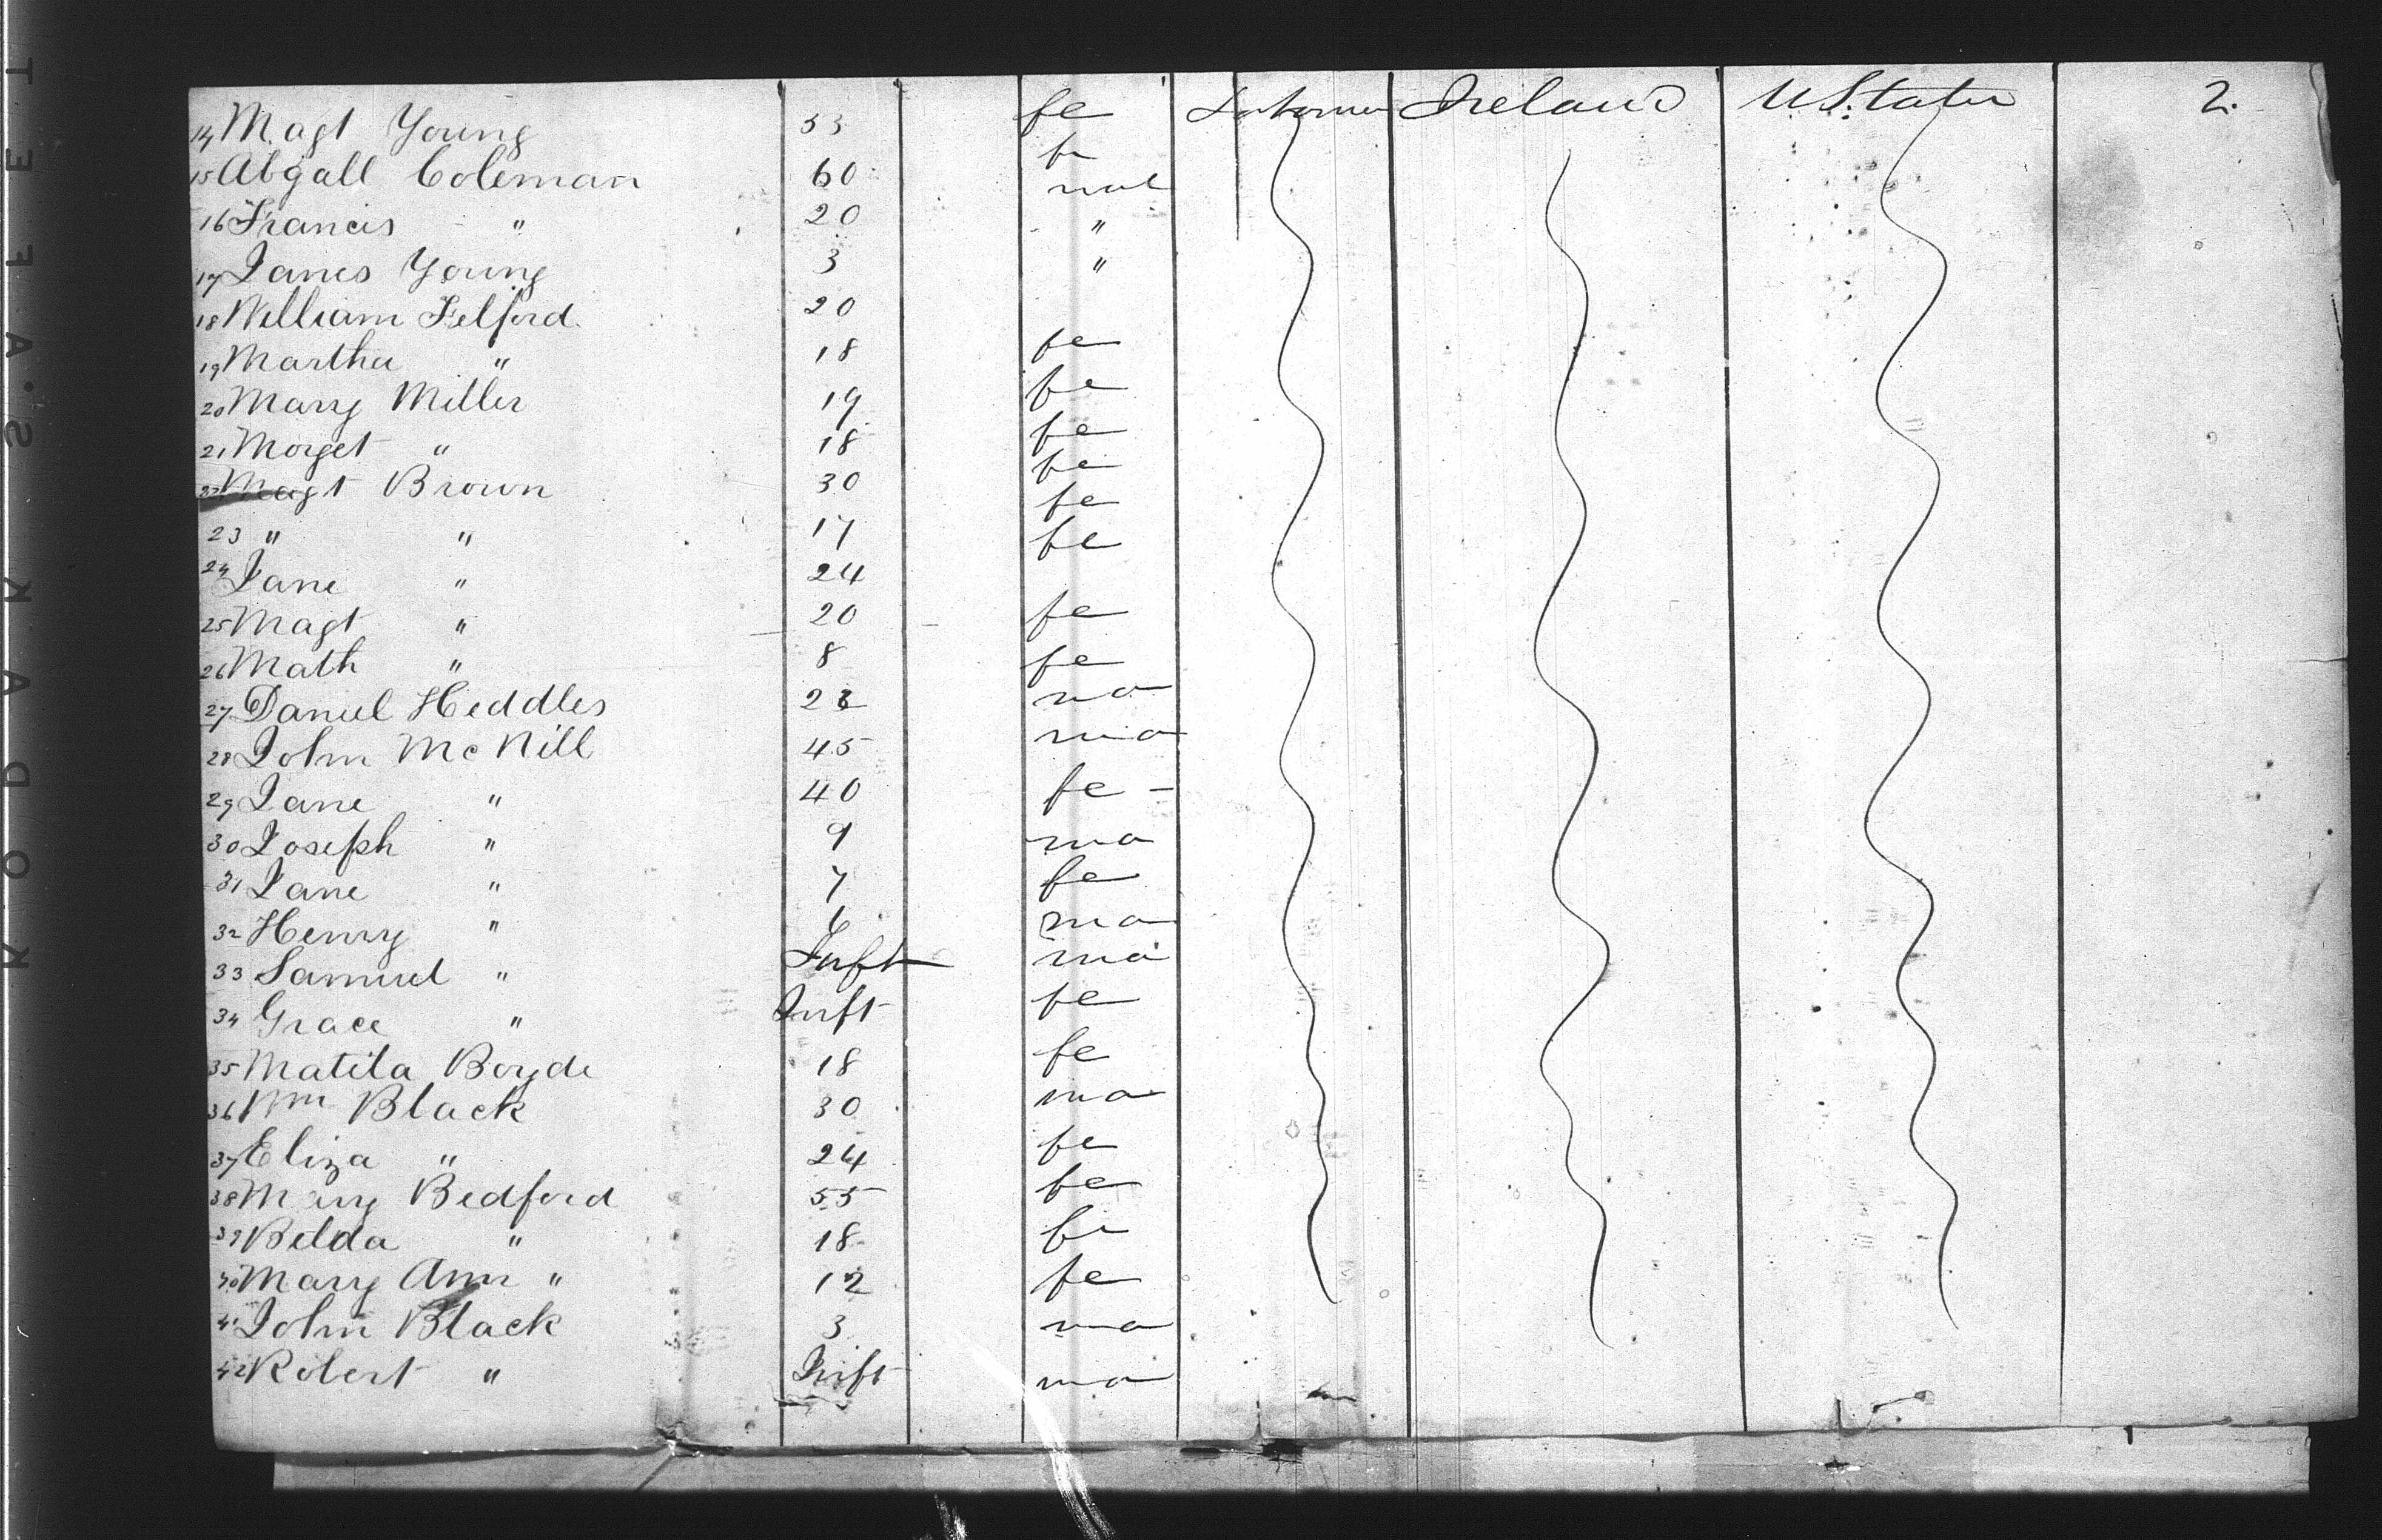 14 Magt Young 53 fe Ireland U States 2.
15 Abgall Coleman 60 fe
16 Francis " 20 mal
17 James Young 3 "
18 William Telford 20 "
19 Martha " 18 fe
20 Mary Miller 19 fe
21 Morget " 18 fe
22 Magt Brown 30 fe
23 " " 17 fe
24 Jane " 24 fe
25 Magt " 20 fe
26 Math " 8 fe
27 Daniel Heddles 23 ma
28 John McNill 45 ma
29 Jane " 40 fe -
30 Joseph " 9 ma
31 Jane " 7 fe
32 Henry " 6 ma
33 Samuel " Inft ma
34 Grace " Inft fe
35 Matila Boyde 18 fe
36 Wm Black 30 ma
37 Eliza " 24 fe
38 Mary Bedford 55 fe
39 Belda " 18 fe
40 Mary Ann " 12 fe
41 John Black 3 ma
42 Robert " Inft ma
KODAK S.A.F.E.T